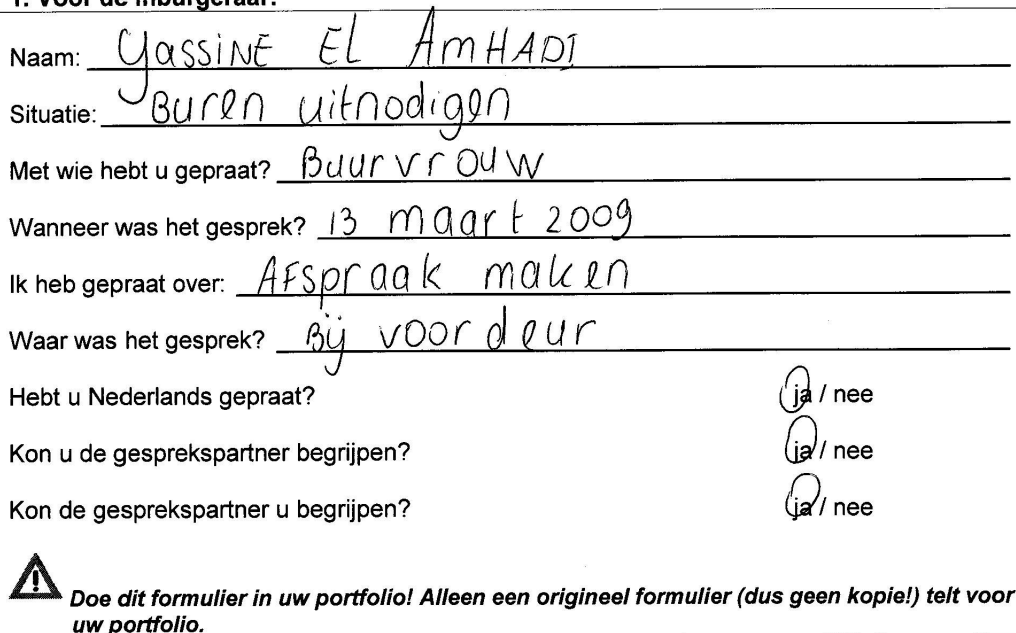 1. Voor de inburgeraar:
Naam: Yassine El Amhadi
Situatie: Buren uitnodigen
Met wie hebt u gepraat? Buurvrouw
Wanneer was het gesprek? 13 maart 2009
Ik heb gepraat over: Afspraak maken
Waar was het gesprek? Bij voordeur
Hebt u Nederlands gepraat? ja / nee
Kon u de gesprekspartner begrijpen? ja / nee
Kon de gesprekspartner u begrijpen? ja / nee
Doe dit formulier in uw portfolio! Alleen een origineel formulier (dus geen kopie!) telt voor
uw portfolio.